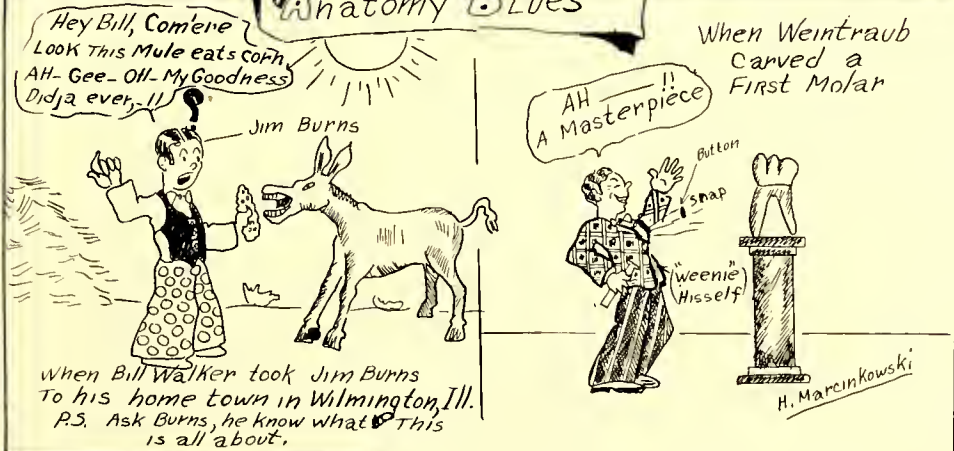 Anatomy Blues
Hey Bill, Com'ere
Look This Mule eats corn,
AH-Gee-OH-My Goodness
Didja ever,-!!
?
Jim Burns
When Bill Walker took Jim Burns
To his home town in Wilmington, Ill.
P.S. Ask Burns, he know what This
is all about.
When Weintraub
Carved a
First Molar
AH — !!
A Masterpiece
Button
snap
("Weenie"
Hisself)
H. Marcinkowski